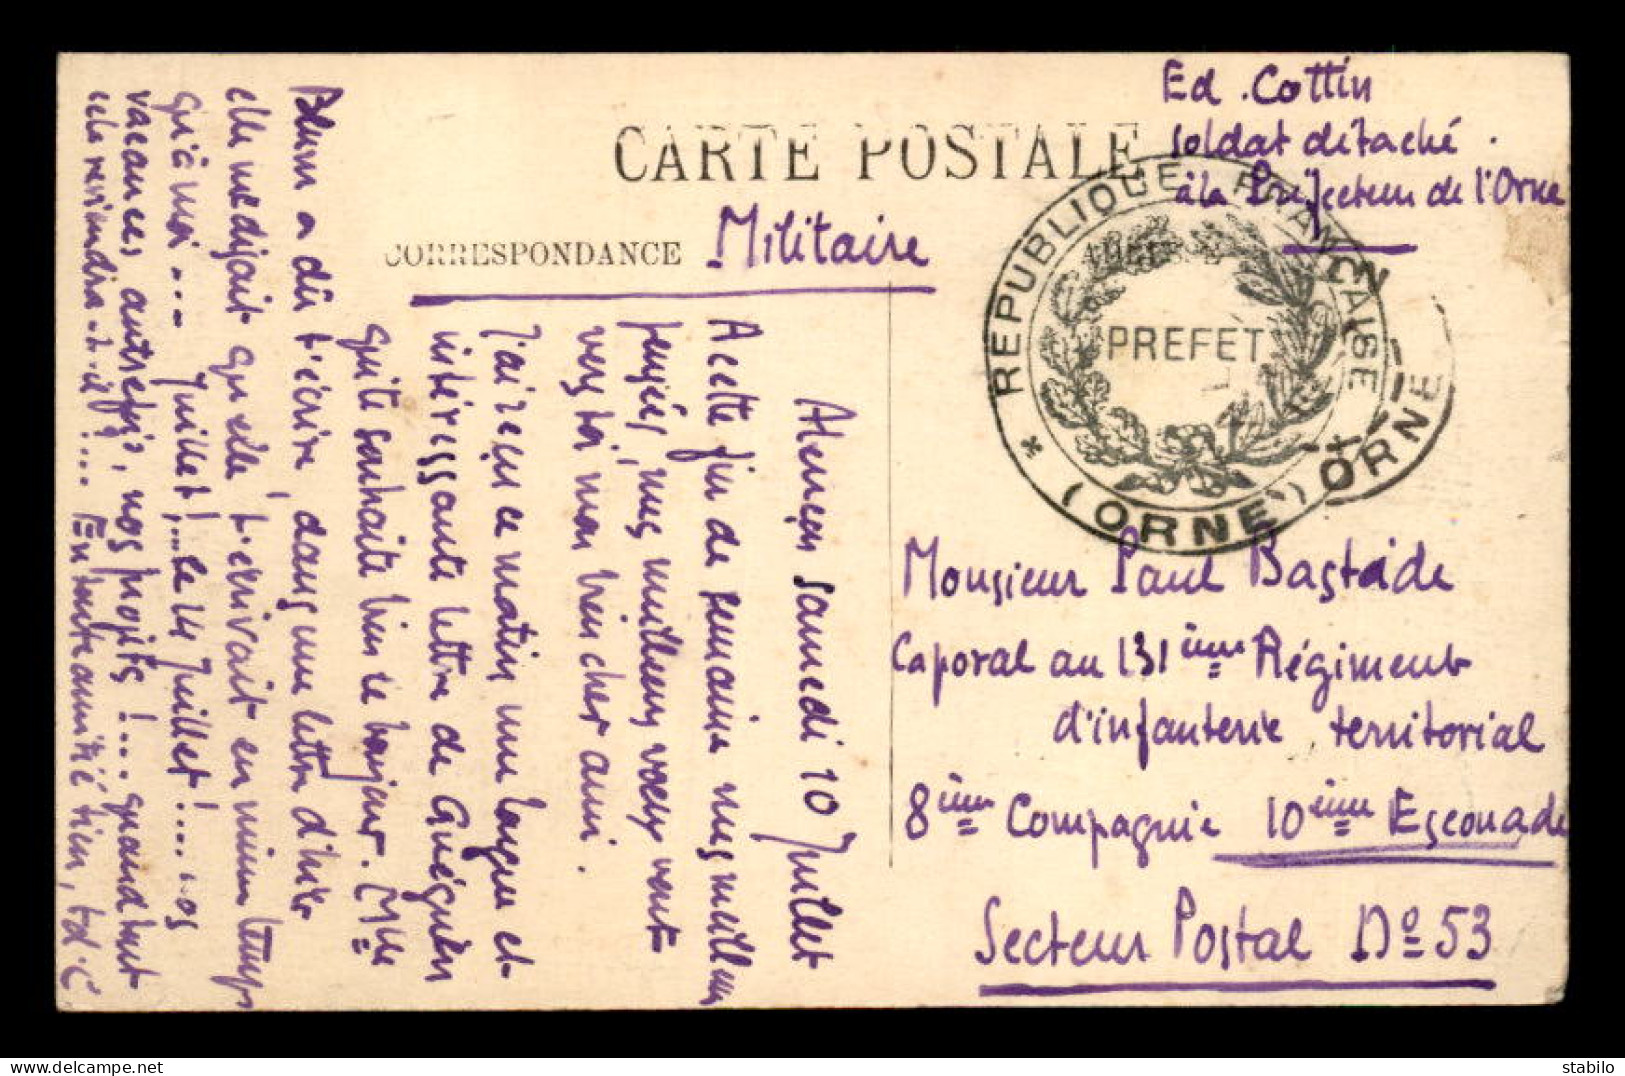 CARTE POSTALE
CORRESPONDANCE
Militaire
Ed. Cottin
soldat détaché
à la Préfecture de l'Orne
REPUBLIQUE FRANÇAISE
PREFET
* (ORNE)
ORNE
Monsieur Paul Bastide
Caporal au 131ème Régiment
d'infanterie territorial
8ème Compagnie 10ème Escouade
Secteur Postal No 53
Alençon samedi 10 Juillet
A cette fin de semaine mes meilleures
pensées, mes meilleurs voeux vont
vers toi mon bien cher ami.
J'ai reçu ce matin une longue et
intéressante lettre de Guéguen
qui te souhaite bien le bonjour. Mlle
Blum a dû t'écrire, dans une lettre d'hier
elle me disait qu'elle t'écrivait en même temps
qu'à moi.... Juillet!... Le 14 Juillet!.... nos
vacances, autrefois, nos projets!... quand tout
cela reviendra-t-il?... En toute amitié tien, Ed. C
stabilo